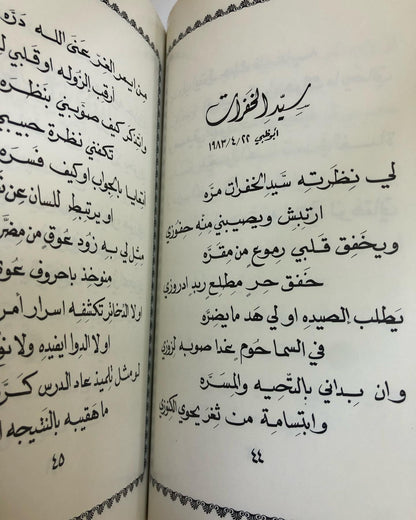 سيّد الخفرات
ابوظبي ٢٢/ ٤/ ١٩٨٣
لي نظرته سيّد الخفرات مرّه
ارتبش ويصيبني منه حفوزي
ويخفق قلبي رموع من مقرّه
خفق حر مطلع ريد ادروزي
يطلب الصيده او لي هد ما يضرّه
في السما حوم غدا صوبه لزوزي
وان بداني بالتحيه والمسرّه
وابتسامة من ثغر يحوي الكنوزي
٤٤
من ايمر الغر عنى الله دره
ارقب الزوله او قلبي
واتذكر كيف صوّبني بنظره
تكفني نظرة حبيبي
انعايا بالجواب اوكيف فسره
او يرتبط للسان عن
مثل لي به زود عوق من مضرّه
منوخذ باحروف
اولا الذخائر تكشفه اسرار
اولا الدوا ايفيده ولا
لو مثل تلميذ عاد الدرس كرّ
ما هقيبه بالنتيجه
٤٥